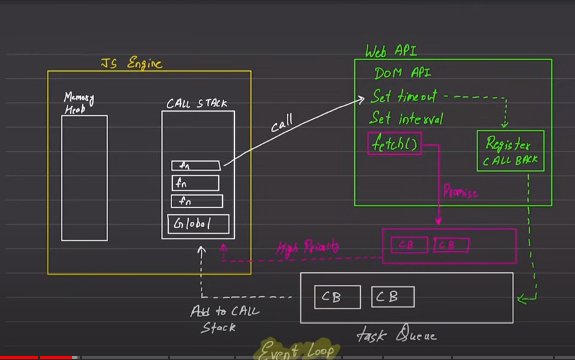 JS Engine
Memory
Heap
CALL STACK
fn
fn
fn
Global
call
Web API
DOM API
Set timeout
Set interval
fetch()
Register
CALL BACK
Promise
High Priority
CB CB
Add to CALL
Stack
CB CB
task Queue
Event Loop